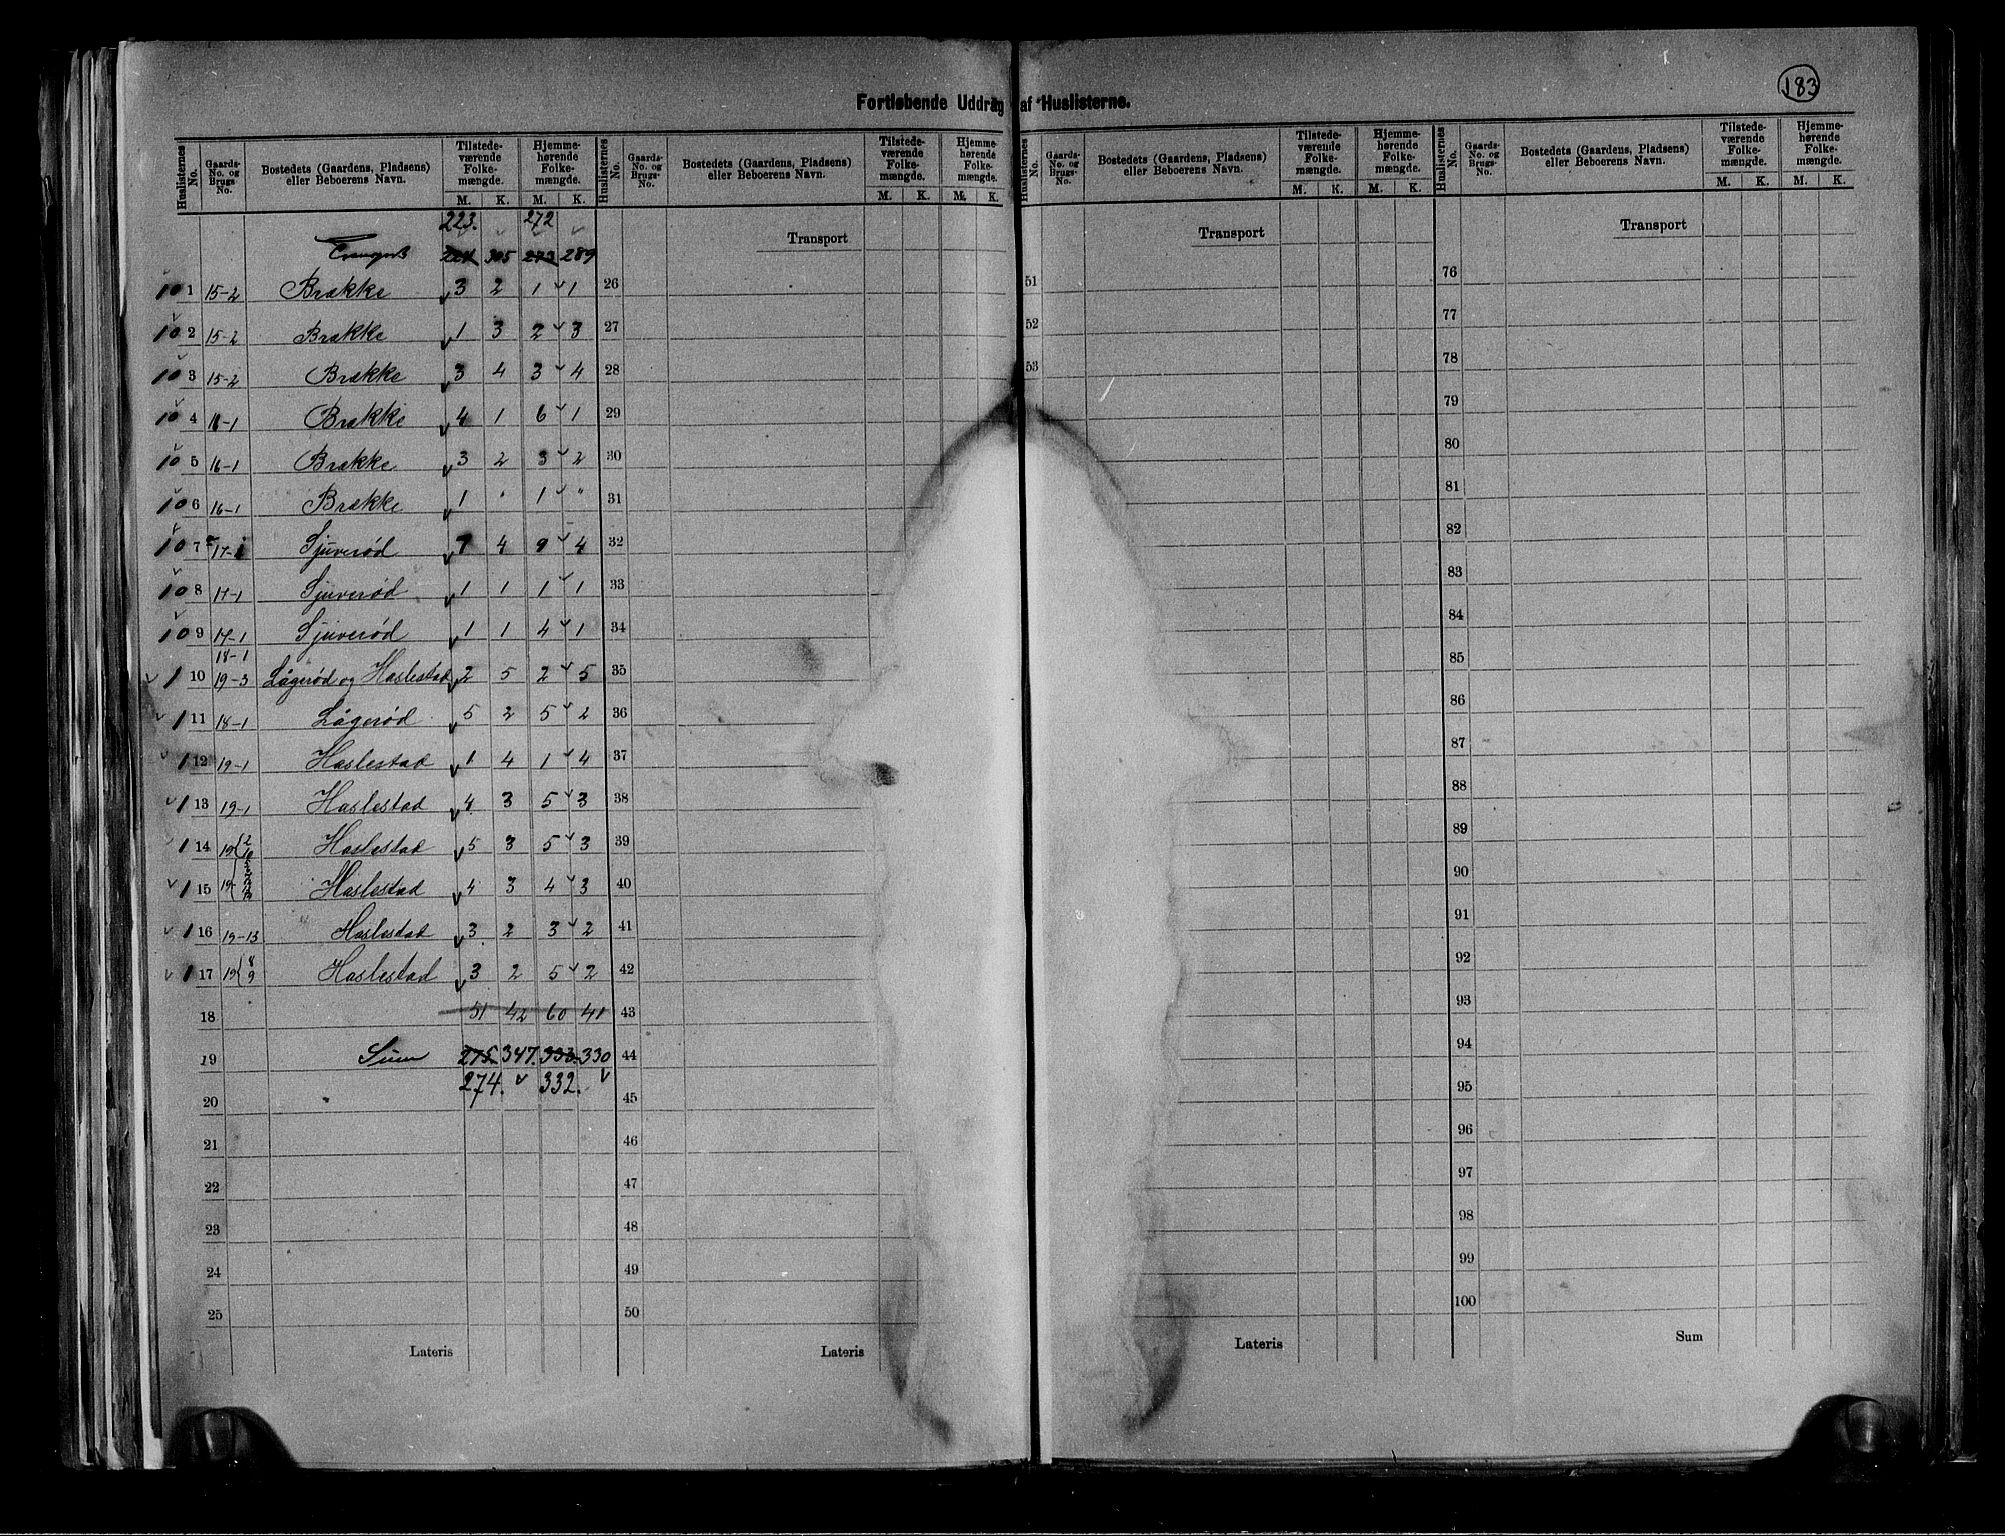 183
Fortløbende Uddrag af Huslisterne.
Huslisternes No. | Gaards-No. og Brugs-No. | Bostedets (Gaardens, Pladsens) eller Beboerens Navn. | Tilstedeværende Folkemængde. M. K. | Hjemmehørende Folkemængde. M. K.
Huslisternes No. | Gaards-No. og Brugs-No. | Bostedets (Gaardens, Pladsens) eller Beboerens Navn. | Tilstedeværende Folkemængde. M. K. | Hjemmehørende Folkemængde. M. K.
Huslisternes No. | Gaards-No. og Brugs-No. | Bostedets (Gaardens, Pladsens) eller Beboerens Navn. | Tilstedeværende Folkemængde. M. K. | Hjemmehørende Folkemængde. M. K.
Huslisternes No. | Gaards-No. og Brugs-No. | Bostedets (Gaardens, Pladsens) eller Beboerens Navn. | Tilstedeværende Folkemængde. M. K. | Hjemmehørende Folkemængde. M. K.
223. 272
Transport 224 305 273 289
10 1 15-2 Brække 3 2 1 1
10 2 15-2 Brække 1 3 2 3
10 3 15-2 Brække 3 4 3 4
10 4 16-1 Brække 4 1 6 1
10 5 16-1 Brække 3 2 3 2
10 6 16-1 Brække 1 " 1 "
10 7 17-1 Sjuverød 7 4 9 4
10 8 17-1 Sjuverød 1 1 1 1
10 9 17-1 Sjuverød 1 1 4 1
18-1
1 10 19-3 Lågerød og Haslestad 2 5 2 5
1 11 18-1 Lågerød 5 2 5 2
1 12 19-1 Haslestad 1 4 1 4
1 13 19-1 Haslestad 4 3 5 3
1 14 19 Haslestad 5 3 5 3
1 15 19 Haslestad 4 3 4 3
1 16 19-13 Haslestad 3 2 3 2
1 17 19{8 9 Haslestad 3 2 5 2
18 51 42 60 41
19 Sum 275 347. 333 330
274. 332.
20
21
22
23
24
25
Lateris
Transport
26
27
28
29
30
31
32
33
34
35
36
37
38
39
40
41
42
43
44
45
46
47
48
49
50
Lateris
Transport
51
52
53
Lateris
Transport
76
77
78
79
80
81
82
83
84
85
86
87
88
89
90
91
92
93
94
95
96
97
98
99
100
Sum